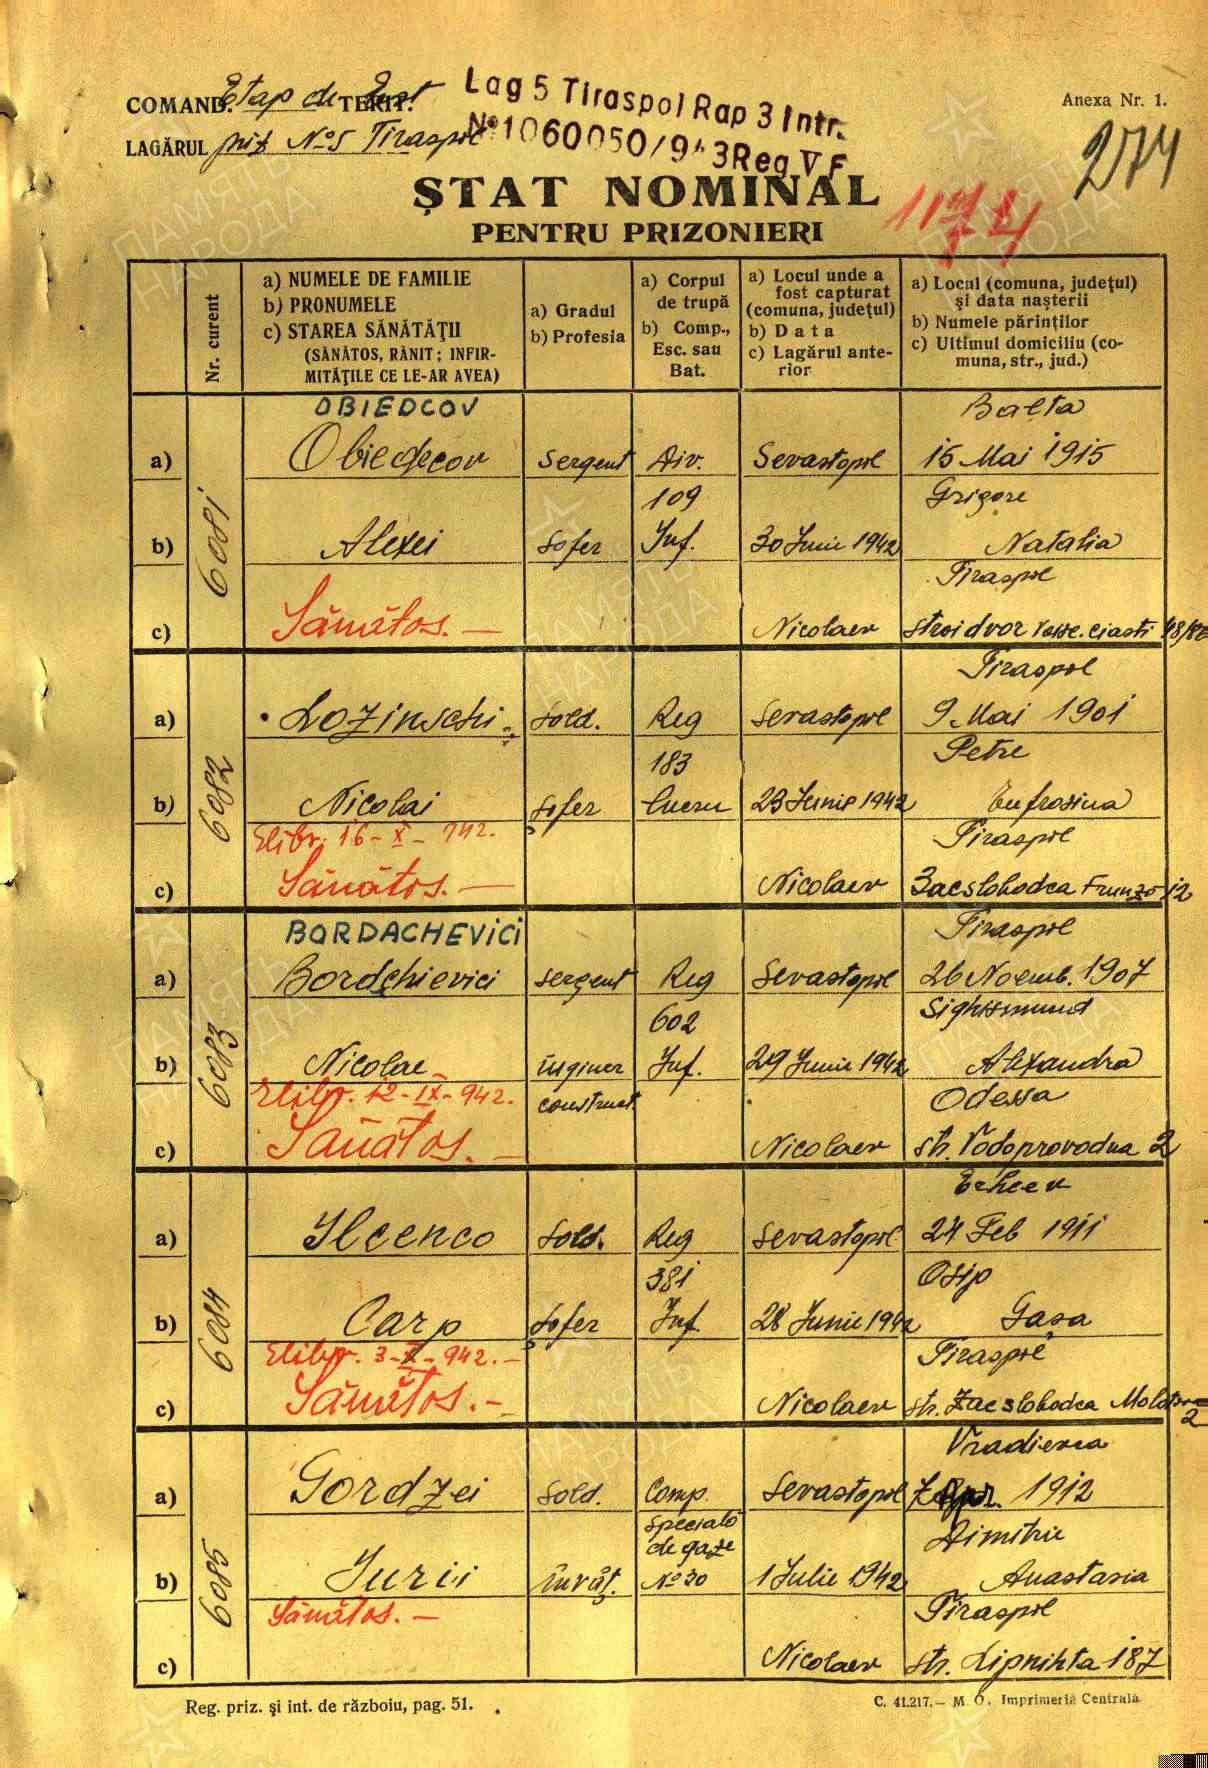 COMAND. Etap de Est TERIT.
LAGĂRUL priz No 5 Tiraspol
Lag 5 Tiraspol Rap 3 Intr.
No 1060050/943 Reg V F
Anexa Nr. 1.
274
1174
ŞTAT NOMINAL
PENTRU PRIZONIERI
Nr. curent
a) NUMELE DE FAMILIE
b) PRONUMELE
c) STAREA SĂNĂTĂŢII
(SĂNĂTOS, RĂNIT; INFIR-
MITĂŢILE CE LE-AR AVEA)
a) Gradul
b) Profesia
a) Corpul
de trupă
b) Comp.,
Esc. sau
Bat.
a) Locul unde a
fost capturat
(comuna, judeţul)
b) Data
c) Lagărul ante-
rior
a) Locul (comuna, judeţul)
şi data naşterii
b) Numele părinţilor
c) Ultimul domiciliu (co-
muna, str., jud.)
6081
OBIEDCOV Balta
a) Obiedecov Sergent Div. Sevastopol 15 Mai 1915
109 Grigore
b) Alexei Sofer Inf. 30 Junie 1942 Natalia
Tiraspol
c) Sănătos. — Nicolaev stroidvor 48/
6082
Tiraspol
a) Lozinschi Sold. Reg Sevastopol 9 Mai 1901
183 Petre
b) Nicolai Şofer lucru 23 Junie 1942 Eufrosina
Elibr. 16-X-942. Tiraspol
c) Sănătos. — Nicolaev Zacslobodca Frunze 12
6083
BORDACHEVICI Tiraspol
a) Bordchievici Sergent Reg Sevastopol 26 Noemb. 1907
602 Sighismund
b) Nicolae inginer Inf. 29 Junie 1942 Alexandra
Elibr. 12-IX-942. construct. Odessa
c) Sănătos. — Nicolaev str. Vodoprovodna 2
6084
a) Ilcenco Sold. Reg Sevastopol 24 Feb 1911
381 Osip
b) Carp Şofer Inf. 28 Junie 1942 Gasa
Elibr. 3-X-942.- Tiraspol
c) Sănătos.- Nicolaev str. Zacslobodca
2
6085
Vradievca
a) Gordzei Sold. Comp. Sevastopol 7 Apr. 1912
Specială Dimitrie
de gaze
b) Iurii învăţ. No 30 1 Julie 1942 Anastasia
Sănătos. — Tiraspol
c) Nicolaev str. Lipnihta 187
Reg. priz. şi int. de războiu, pag. 51.
C. 41.217.— M. O. Imprimeria Centrală
ПАМЯТЬ
НАРОДА